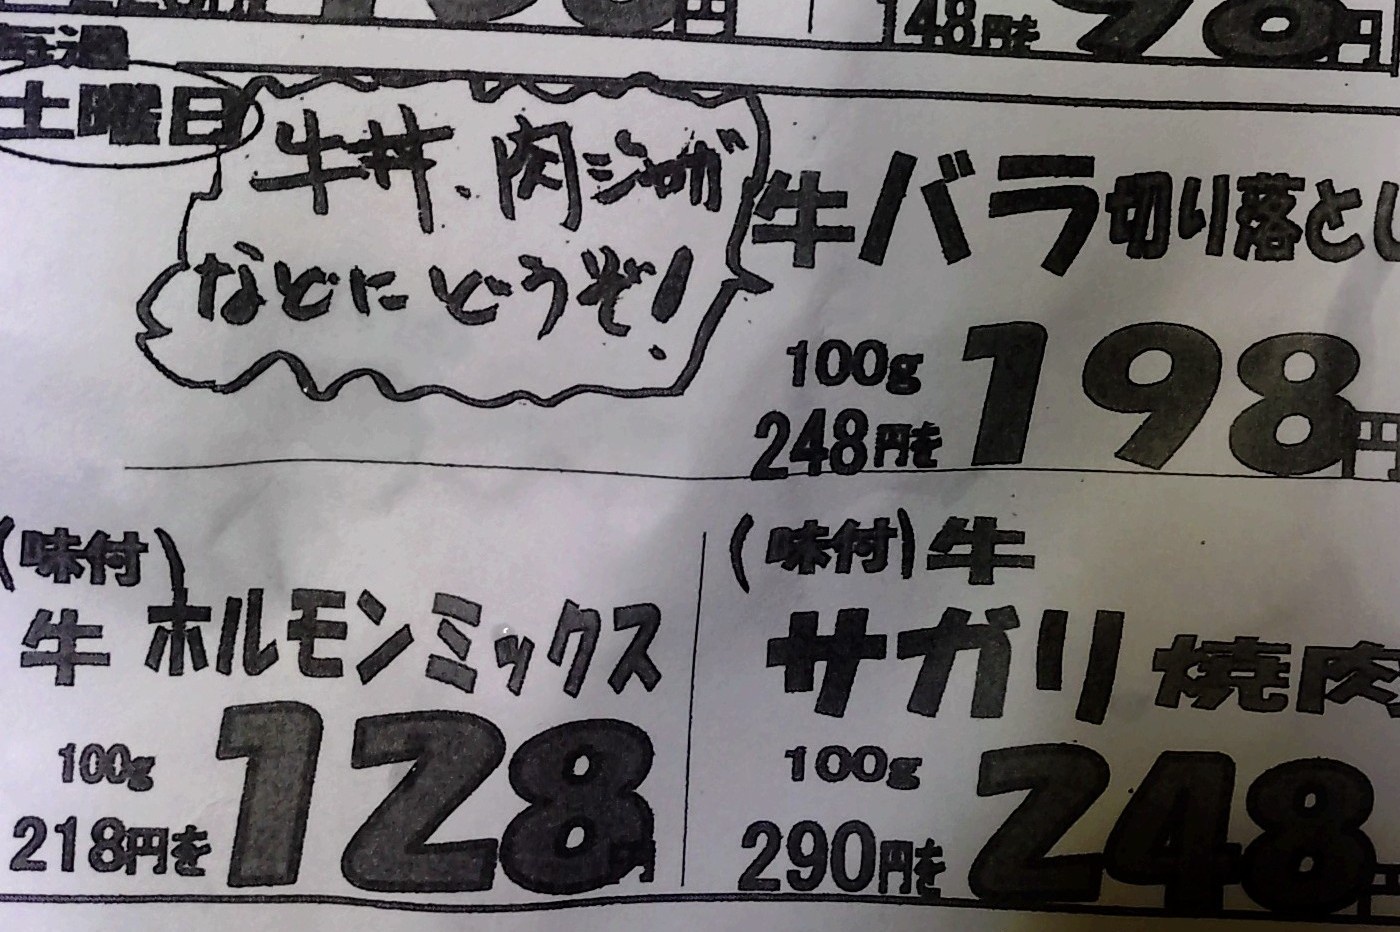 148円を 98円
毎週
土曜日
牛丼、肉ジャガ
などにどうぞ!
牛バラ切り落とし
100g
248円を 198円
(味付)
牛 ホルモンミックス
100g
218円を 128円
(味付)牛
サガリ 焼肉
100g
290円を 248円